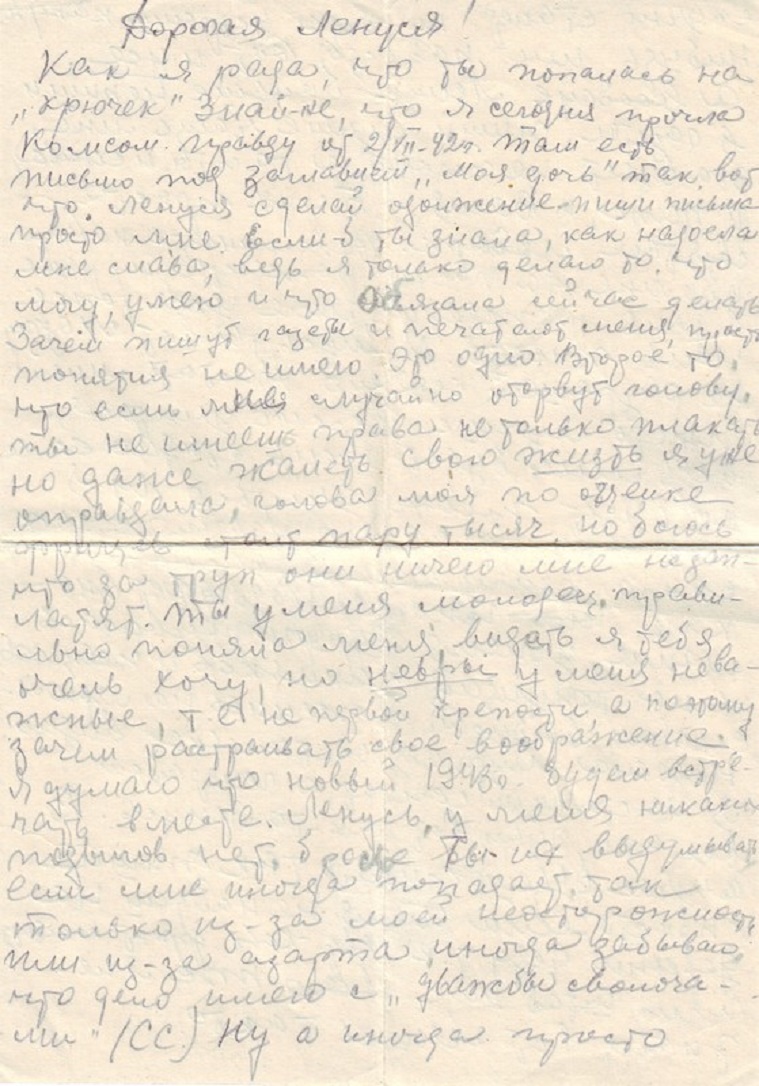 Дорогая Ленуся!
Как я рада, что ты попалась на
„крючек" Знай-же, что я сегодня прочла
Комсом. правду от 2/VII-42г. там есть
письмо под заглавием „Моя дочь" так вот
что. Ленуся сделай одолжение пиши письма
просто мне. Если-б ты знала, как надоела
мне слава, ведь я только делаю то. что
могу, умею и что обязана сейчас делать
Зачем пишут газеты и печатают меня, просто
понятия не имею. Это одно. Второе то,
что если мне случайно оторвут голову.
ты не имеешь права не только плакать
но даже жалеть свою жизть я уже
оправдала, голова моя по оценке
фрицев стоит пару тысяч, но боюсь
что за труп они ничего мне не зап-
латят. Ты у меня молодец, прави-
льно поняла меня, видать я тебя
очень хочу, но невры у меня нева-
жные, т е не первой крепости, а поэтому
зачем растраивать свое воображение.
Я думаю что новый 1943г. будем встре-
чать вместе. Ленусь, у меня никаких
подвигов нет, брось ты их выдумывать
если мне иногда попадает, так
только из-за моей неосторожности
или из-за азарта, иногда забываю,
что дело имею с „дважды сволоча-
ми" (СС.) Ну а иногда просто